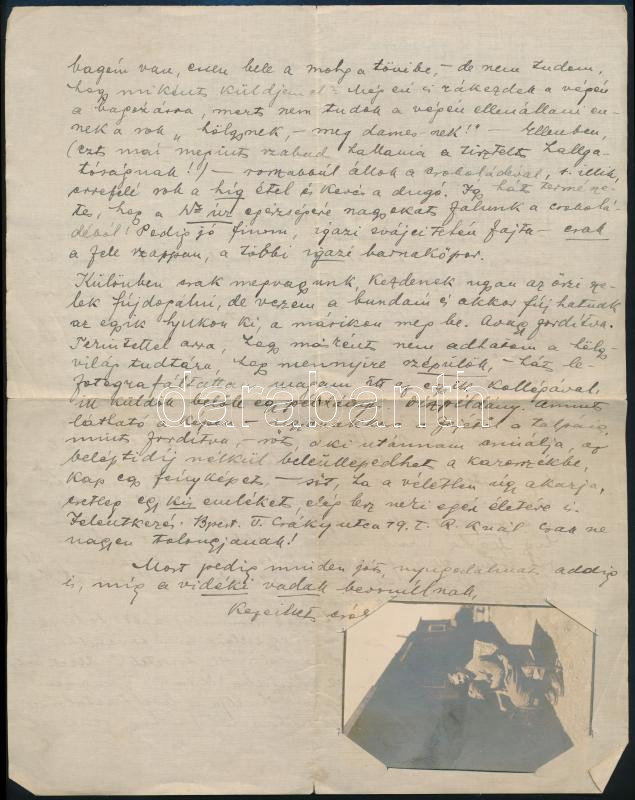 bagém van, esen bele a motza tövibe, – de nem tudom,
hogy miként küldjem el? Még én is rákezdek a végén
a bagozásra, mert nem tudok a végén ellenállani en-
nek a sok „hölgynek, – meg dames-nek!" – Ellenben,
(ezt mái megint szabad hallania a tisztelt hallga-
tóságnak!!) – rosszabbúl állok a csokoládéval, s. illik,
errefelé sok a híg étel és kevés a dugó. Így hát természe-
tes, hogy a Nsz úr egészségére nagyokat falunk a csokolá-
déból! Pedig jó finom, igazi svájci eteten fajta – csak
a fele szappan, a többi igazi barnakőpor.
Különben csak megvagyunk, kezdenek ugyan az őszi sze-
lek fújdogálni, de veszem a bundám és akkor fújhatnak
az egyik lyukon ki, a másikon meg be. Avagy fordítva.
Tekintettel arra, hogy másként nem adhatom a hölgy-
világ tudtára, hogy mennyire szépülök, – hát le-
fotografáltattam magam itt az egyik kollégával,
itt küldök belőle egy példányt. Amint
látható a képen – a a talpam,
mint fordítva, – sőt, aki utánnam csinálja, az
beléptidíj nélkül beleüllepedhet a karosszékbe,
kap egy fényképet, – sőt, ha a véletlen úgy akarja,
esetleg egy kis emléket, elég lesz neki egész életére is.
Jelentkezés: Bpest. V. Csáky utca 19. I. R-knál csak ne
nagyon tolongjanak!
Most pedig minden jót, nyugodalmat addig
is, míg a vidéki vadak bevonúlnak,
Kezeiket csók
darabanth